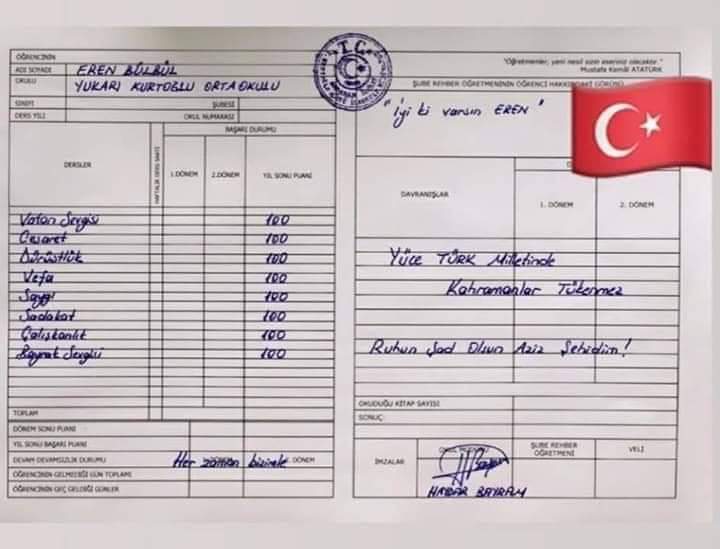 ÖĞRENCİNİN
ADI SOYADI EREN BÜLBÜL
OKULU YUKARI KURTOĞLU ORTAOKULU
SINIFI ŞUBESİ
DERS YILI OKUL NUMARASI
DERSLER
HAFTALIK DERS SAATİ
BAŞARI DURUMU
1.DÖNEM 2.DÖNEM YIL SONU PUANI
Vatan Sevgisi 100
Cesaret 100
Dürüstlük 100
Vefa 100
Saygı 100
Sadakat 100
Çalışkanlık 100
Bayrak Sevgisi 100
TOPLAM
DÖNEM SONU PUANI
YIL SONU BAŞARI PUANI
DEVAM DEVAMSIZLIK DURUMU Her zaman bizimle DÖNEM
ÖĞRENCİNİN GELMEDİĞİ GÜN TOPLAMI
ÖĞRENCİNİN GEÇ GELDİĞİ GÜNLER
T.C.
"Öğretmenler, yeni nesil sizin eseriniz olacaktır."
Mustafa Kemâl ATATÜRK
ŞUBE REHBER ÖĞRETMENİNİN ÖĞRENCİ HAKKINDAKİ GÖRÜŞÜ
"İyi ki varsın EREN"
DAVRANIŞLAR
1. DÖNEM 2. DÖNEM
Yüce TÜRK Milletinde
Kahramanlar Tükenmez
Ruhun Şad Olsun Aziz Şehidim!
OKUDUĞU KİTAP SAYISI
SONUÇ:
İMZALAR
ŞUBE REHBER ÖĞRETMENİ
VELİ
HAYDAR BAYRAM